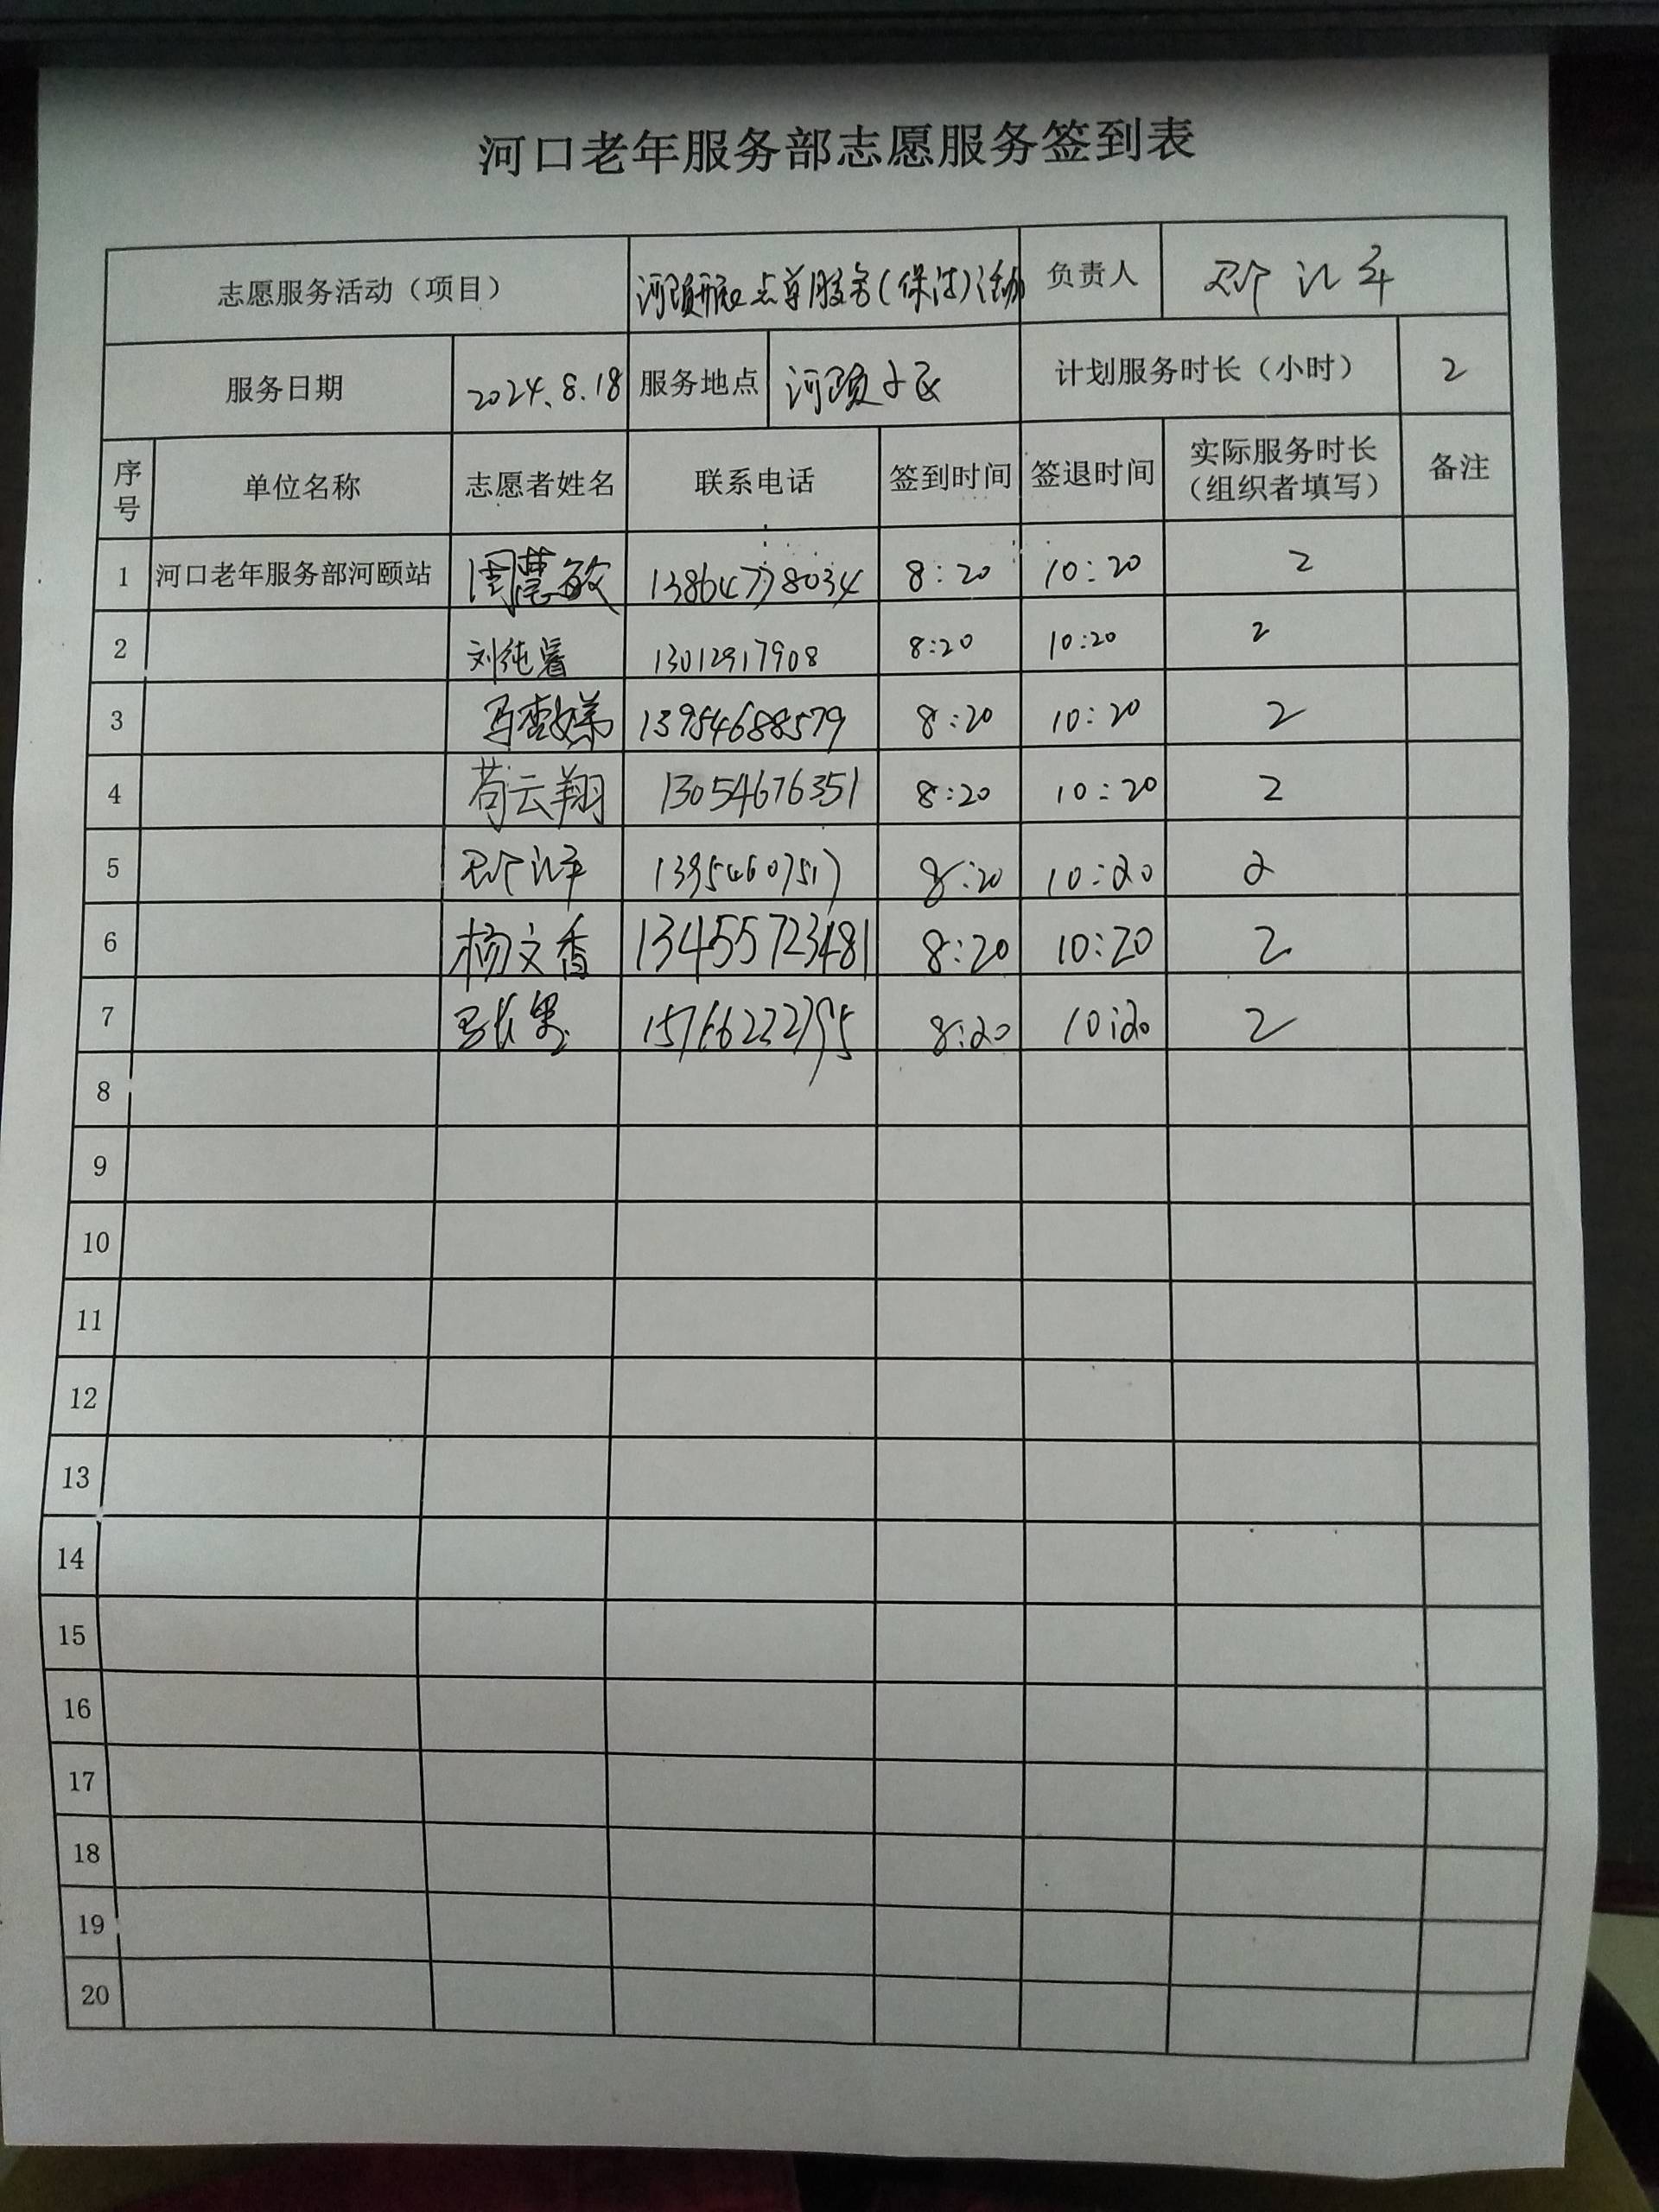 河口老年服务部志愿服务签到表
志愿服务活动（项目） 服务(保洁)活动 负责人
服务日期 2024.8.18 服务地点 河颐小区 计划服务时长（小时） 2
序号 单位名称 志愿者姓名 联系电话 签到时间 签退时间 实际服务时长（组织者填写） 备注
1 河口老年服务部河颐站 13864778034 8:20 10:20 2
2 13012917908 8:20 10:20 2
3 13954688579 8:20 10:20 2
4 苟云翔 13054676351 8:20 10:20 2
5 13954607517 8:20 10:20 2
6 杨文香 13455723481 8:20 10:20 2
7 8:20 10:20 2
8
9
10
11
12
13
14
15
16
17
18
19
20